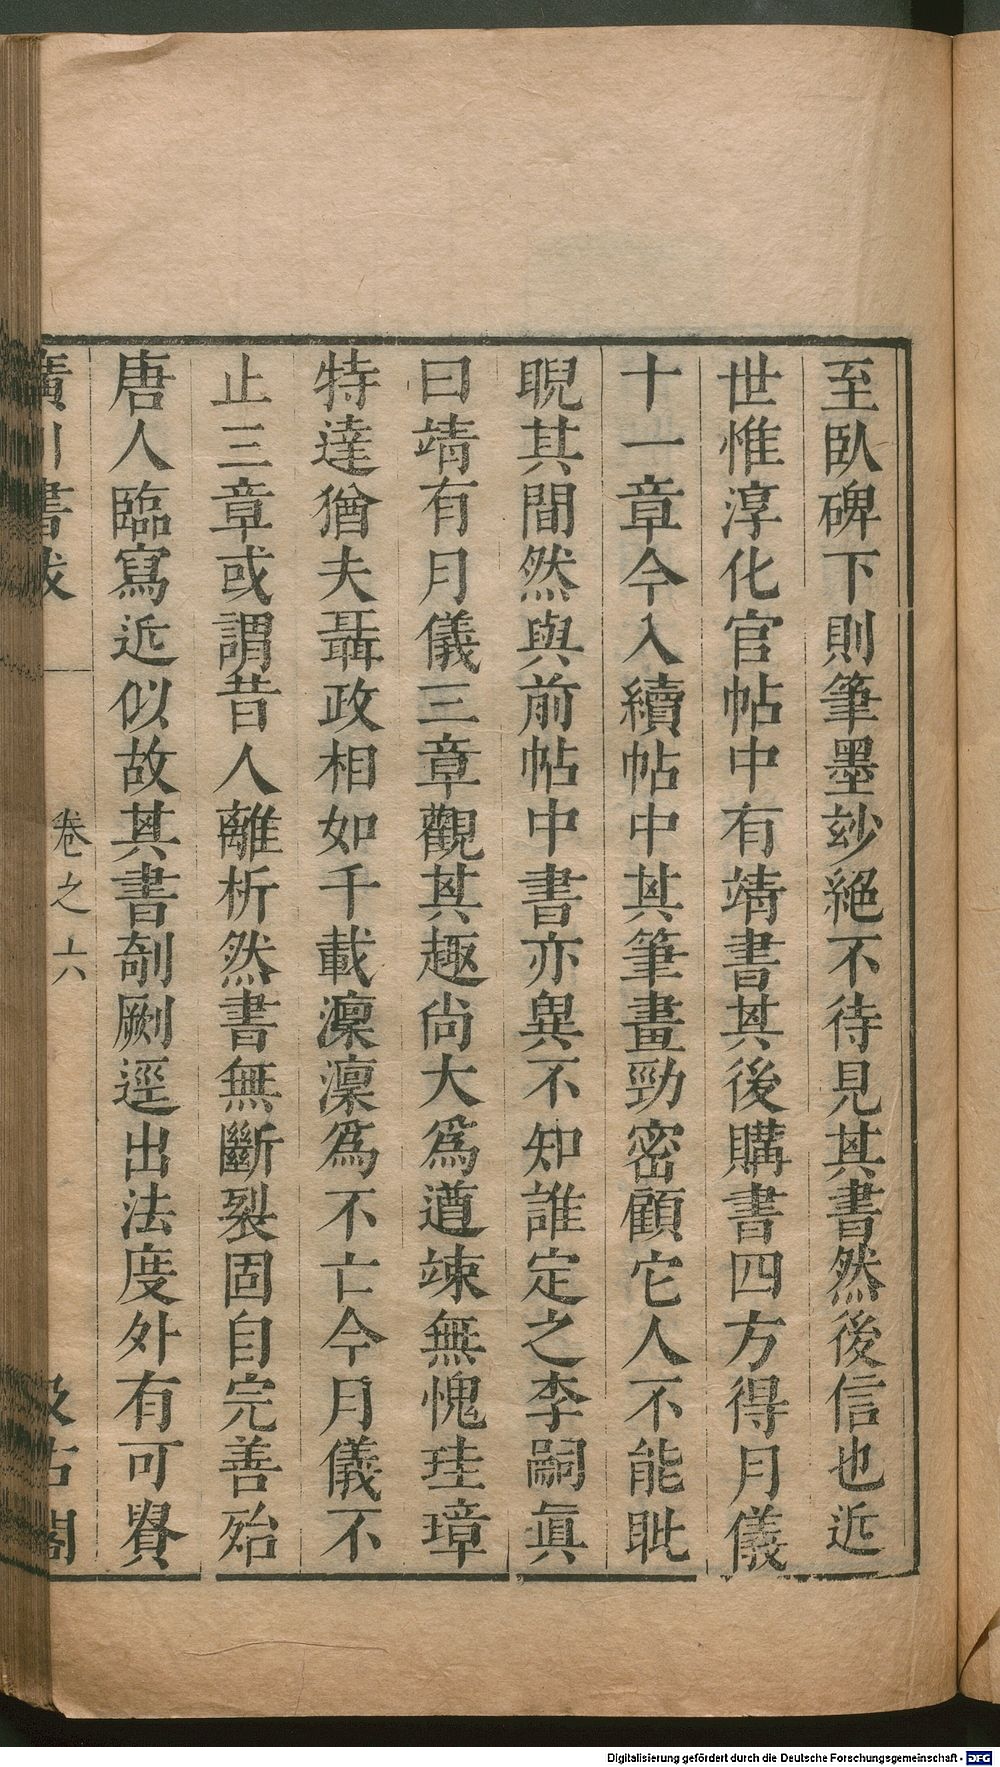 至臥碑下則筆墨玅絕不待見其書然後信也近
世惟淳化官帖中有靖書其後購書四方得月儀
十一章今入續帖中其筆畫勁密顧它人不能毗
睨其間然與前帖中書亦異不知誰定之李嗣眞
曰靖有月儀三章觀其趣尚大爲遒竦無愧珪璋
特達猶夫聶政相如千載凜凜爲不亡今月儀不
止三章或謂昔人離析然書無斷裂固自完善殆
唐人臨寫近似故其書剞劂逕出法度外有可賞
廣川書跋
卷之六
汲古閣
Digitalisierung gefördert durch die Deutsche Forschungsgemeinschaft - DFG